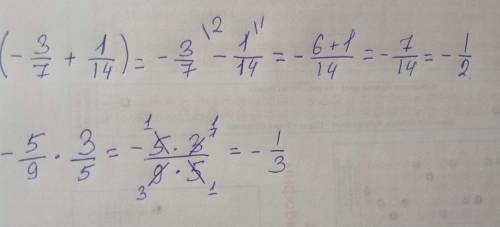 (-3/7 + 1/14) = -3/7 \2 - 1/14 \1 = -6+1/14 = -7/14 = -1/2
-5/9 · 3/5 = -5 1 · 3 1/9 3 · 5 1 = -1/3